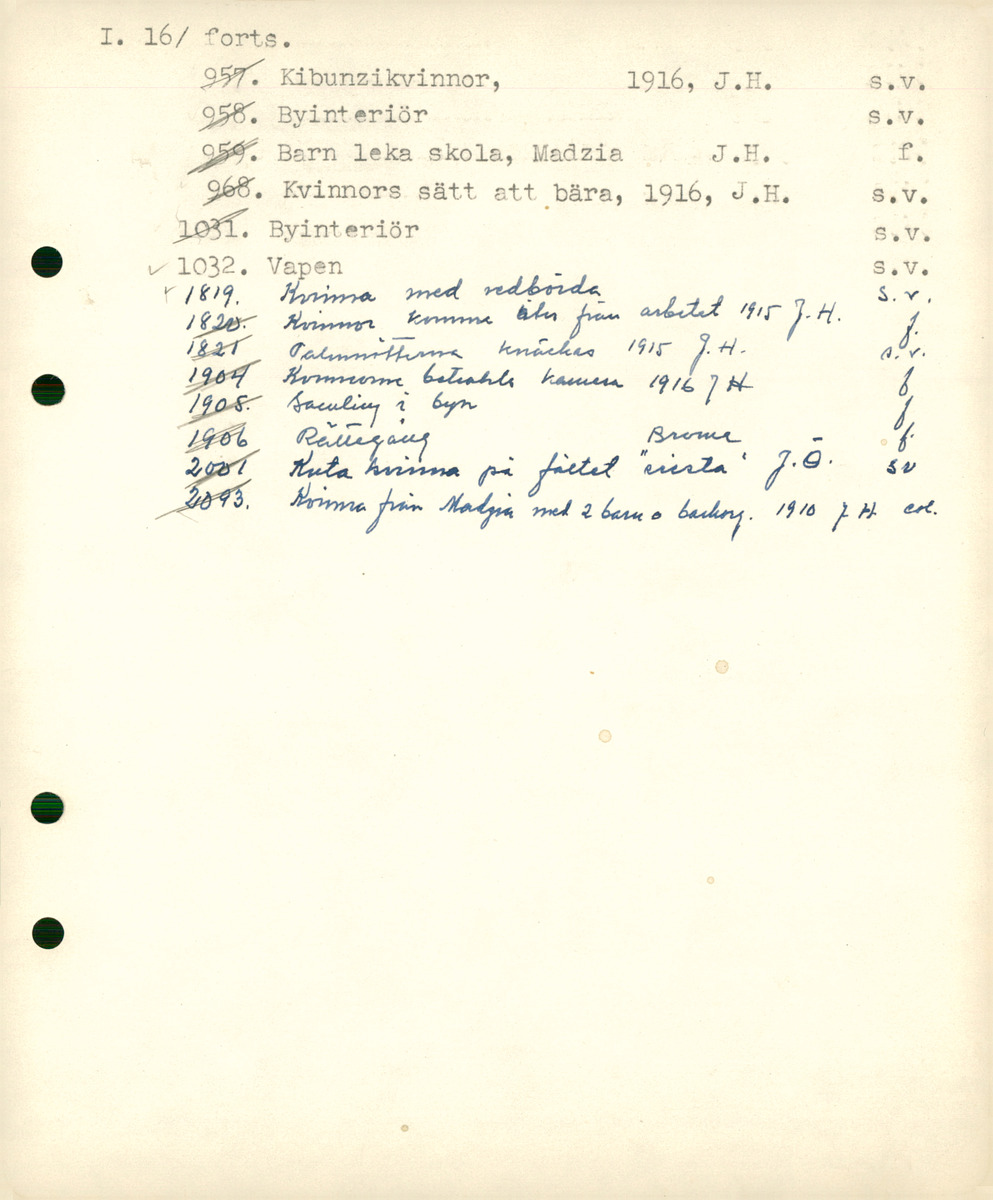 I. 16/ forts.
957. Kibunzikvinnor, 1916, J.H. s.v.
958. Byinteriör s.v.
959. Barn leka skola, Madzia J.H. f.
968. Kvinnors sätt att bära, 1916, J.H. s.v.
1031. Byinteriör s.v.
1032. Vapen s.v.
1819. Kvinna med vedbörda s.v.
1820. Kvinnor komma åter från arbetet 1915 J.H. f.
1821 Palmnötterna knäckas 1915 J.H. s.v.
1904 Kvinnorna betrakta kamera 1916 J H f
1905. Samling i byn f
1906 Rättegång f.
2001 Kuta kvinna på fältet J.Ö. sv
2093. Kvinna från Madzia med 2 barn o barkorg. 1910 J H col.